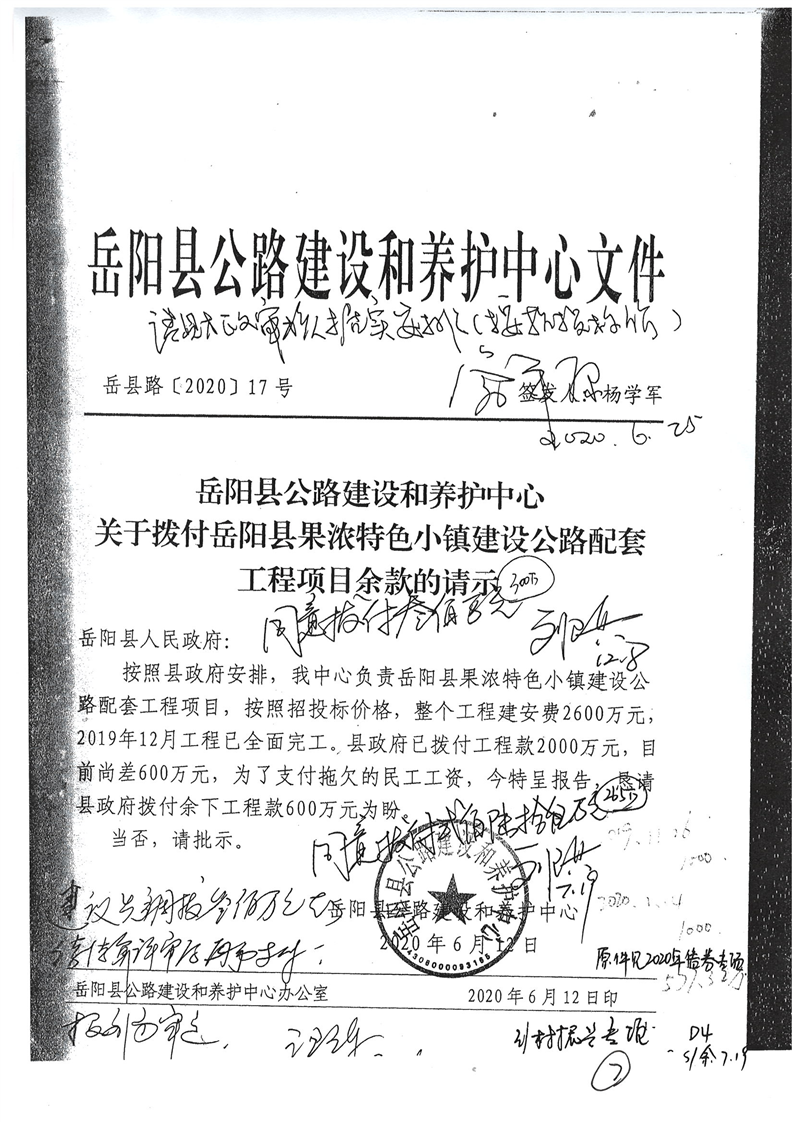 岳阳县公路建设和养护中心文件
岳县路〔2020〕17号
签发人：杨学军
2020.6.25
岳阳县公路建设和养护中心
关于拨付岳阳县果浓特色小镇建设公路配套
工程项目余款的请示
300万
同意拨付叁佰万元
12.8
岳阳县人民政府：
按照县政府安排，我中心负责岳阳县果浓特色小镇建设公
路配套工程项目，按照招投标价格，整个工程建安费2600万元，
2019年12月工程已全面完工。县政府已拨付工程款2000万元，目
前尚差600万元，为了支付拖欠的民工工资，今特呈报告，恳请
县政府拨付余下工程款600万元为盼。
265万
当否，请批示。
同意拨付贰佰陆拾伍万元
7.19
2019.11.26
1000
1000
岳阳县公路建设和养护中心
2020年6月12日
4306000093165
原件见2020年债券专项
岳阳县公路建设和养护中心办公室
2020年6月12日印
乡村振兴专项
D4
7.19